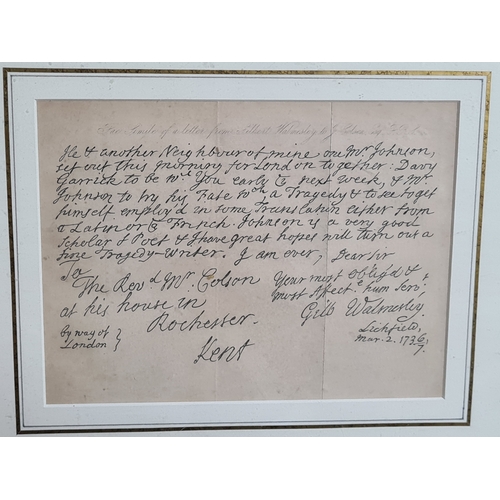 Fac Simile of a letter from Gilbert Walmsley to
He & another Neighbour of mine one Mr. Johnson,
set out this morning for London together. Davy
Garrick to be wth You early ye next week, & Mr.
Johnson to try his Fate wth a Tragedy & to see to get
himself employ'd in some Translation either from
ye Latin or ye French. Johnson is a very good
Scholar & Poet & I have great hopes will turn out a
fine Tragedy-Writer. I am ever, Dear Sir
To
Your most Oblig'd &
The Revd Mr. Colson
Most Affecte hum Servt
at his house in
Gilb Walmesley.
Rochester.
Lichfield,
by way of
Mar. 2. 1736/7.
London
Kent